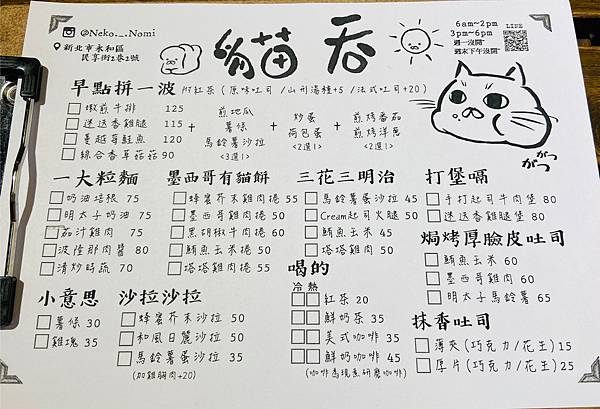 @Neko._.Nomi
新北市永和區
民享街2巷2號
貓吞
6am~2pm
3pm~6pm
週一沒開~
週末下午沒開~
LINE
早點拼一波 附紅茶(原味吐司/山形湯種+5/法式吐司+20)
嫩煎牛排 115
迷迷香雞腿 115
蔓越莓鮭魚 120
綜合香草菇菇 90
+
煎地瓜
薯條
馬鈴薯沙拉
<3選1>
+
炒蛋
荷包蛋
<2選1>
+
煎烤番茄
煎烤洋蔥
<2選1>
がつ
がつ
一大粒麵
奶油培根 75
明太子奶油 75
茄汁雞肉 75
波隆那肉醬 80
清炒時蔬 70
墨西哥有貓餅
蜂蜜芥末雞肉捲 55
墨西哥雞肉捲 50
黑胡椒牛肉捲 60
鮪魚玉米捲 50
塔塔雞肉捲 55
三花三明治
馬鈴薯蛋沙拉 45
Cream起司火腿 50
鮪魚玉米 45
塔塔雞肉 50
打堡嗝
手打起司牛肉堡 80
迷迷香雞腿堡 80
焗烤厚臉皮吐司
鮪魚玉米 60
墨西哥雞肉 60
明太子馬鈴薯 65
小意思
薯條 30
雞塊 35
沙拉沙拉
蜂蜜芥末沙拉 35
和風日麗沙拉 35
馬鈴薯蛋沙拉 35
(加雞胸肉+20)
喝的
冷 熱
紅茶 20
鮮奶茶 35
美式咖啡 35
鮮奶咖啡 45
(咖啡為現煮研磨咖啡)
抹香吐司
薄夾(巧克力/花生)15
厚片(巧克力/花生)25